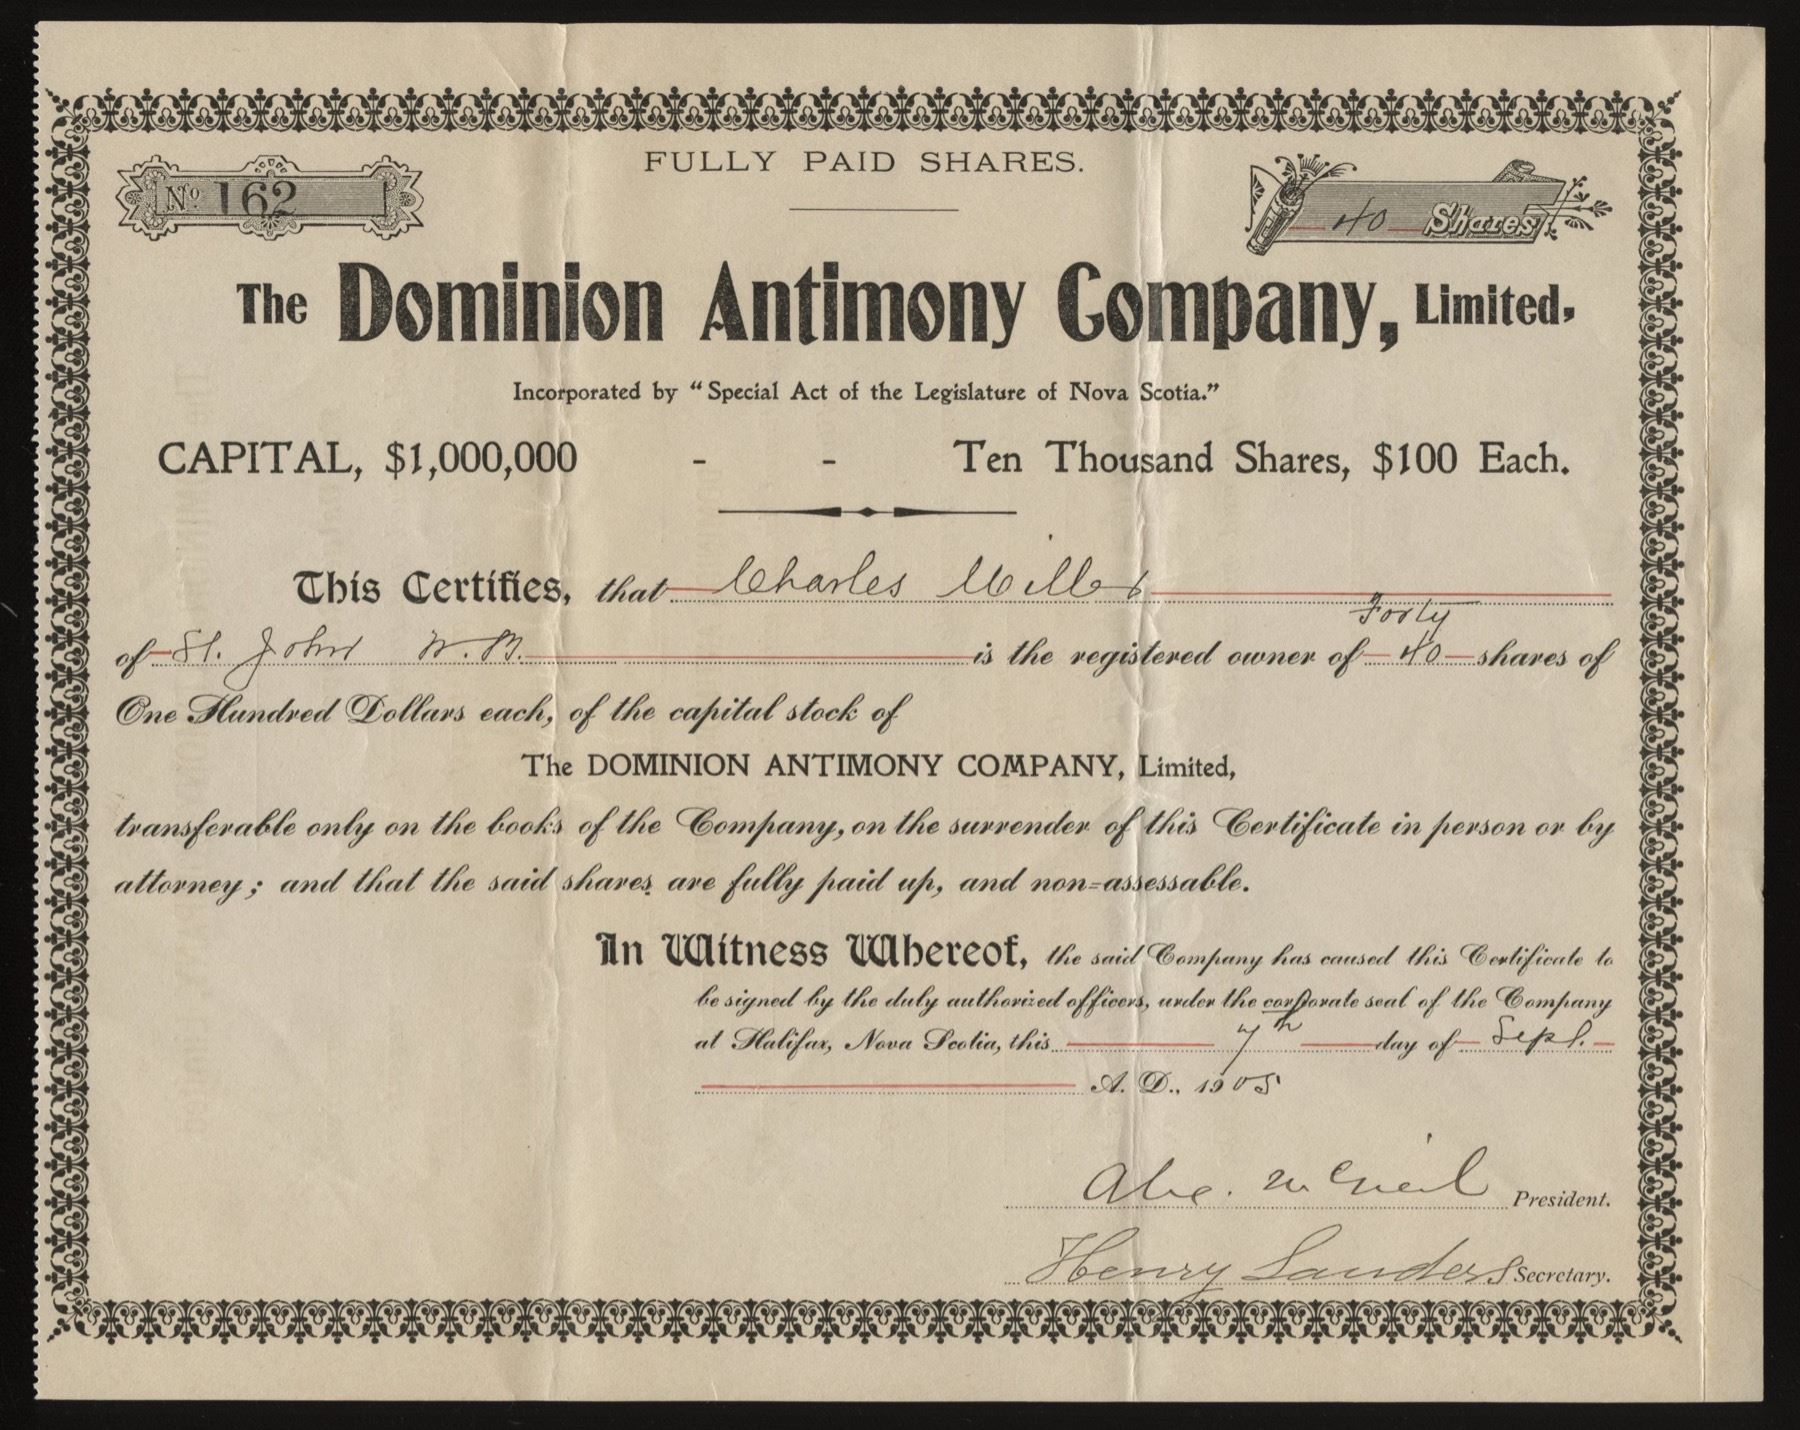 FULLY PAID SHARES.
No. 162
40 Shares
The Dominion Antimony Company, Limited,
Incorporated by "Special Act of the Legislature of Nova Scotia."
CAPITAL, $1,000,000 - - Ten Thousand Shares, $100 Each.
This Certifies, that Charles Miller
Forty
of St. John N.B. is the registered owner of 40 shares of
One Hundred Dollars each, of the capital stock of
The DOMINION ANTIMONY COMPANY, Limited,
transferable only on the books of the Company, on the surrender of this Certificate in person or by
attorney; and that the said shares are fully paid up, and non=assessable.
In Witness Whereof, the said Company has caused this Certificate to
be signed by the duly authorized officers, under the corporate seal of the Company
at Halifax, Nova Scotia, this 7th day of Sept.
A. D., 1905
McNeil President.
Henry Sanders Secretary.